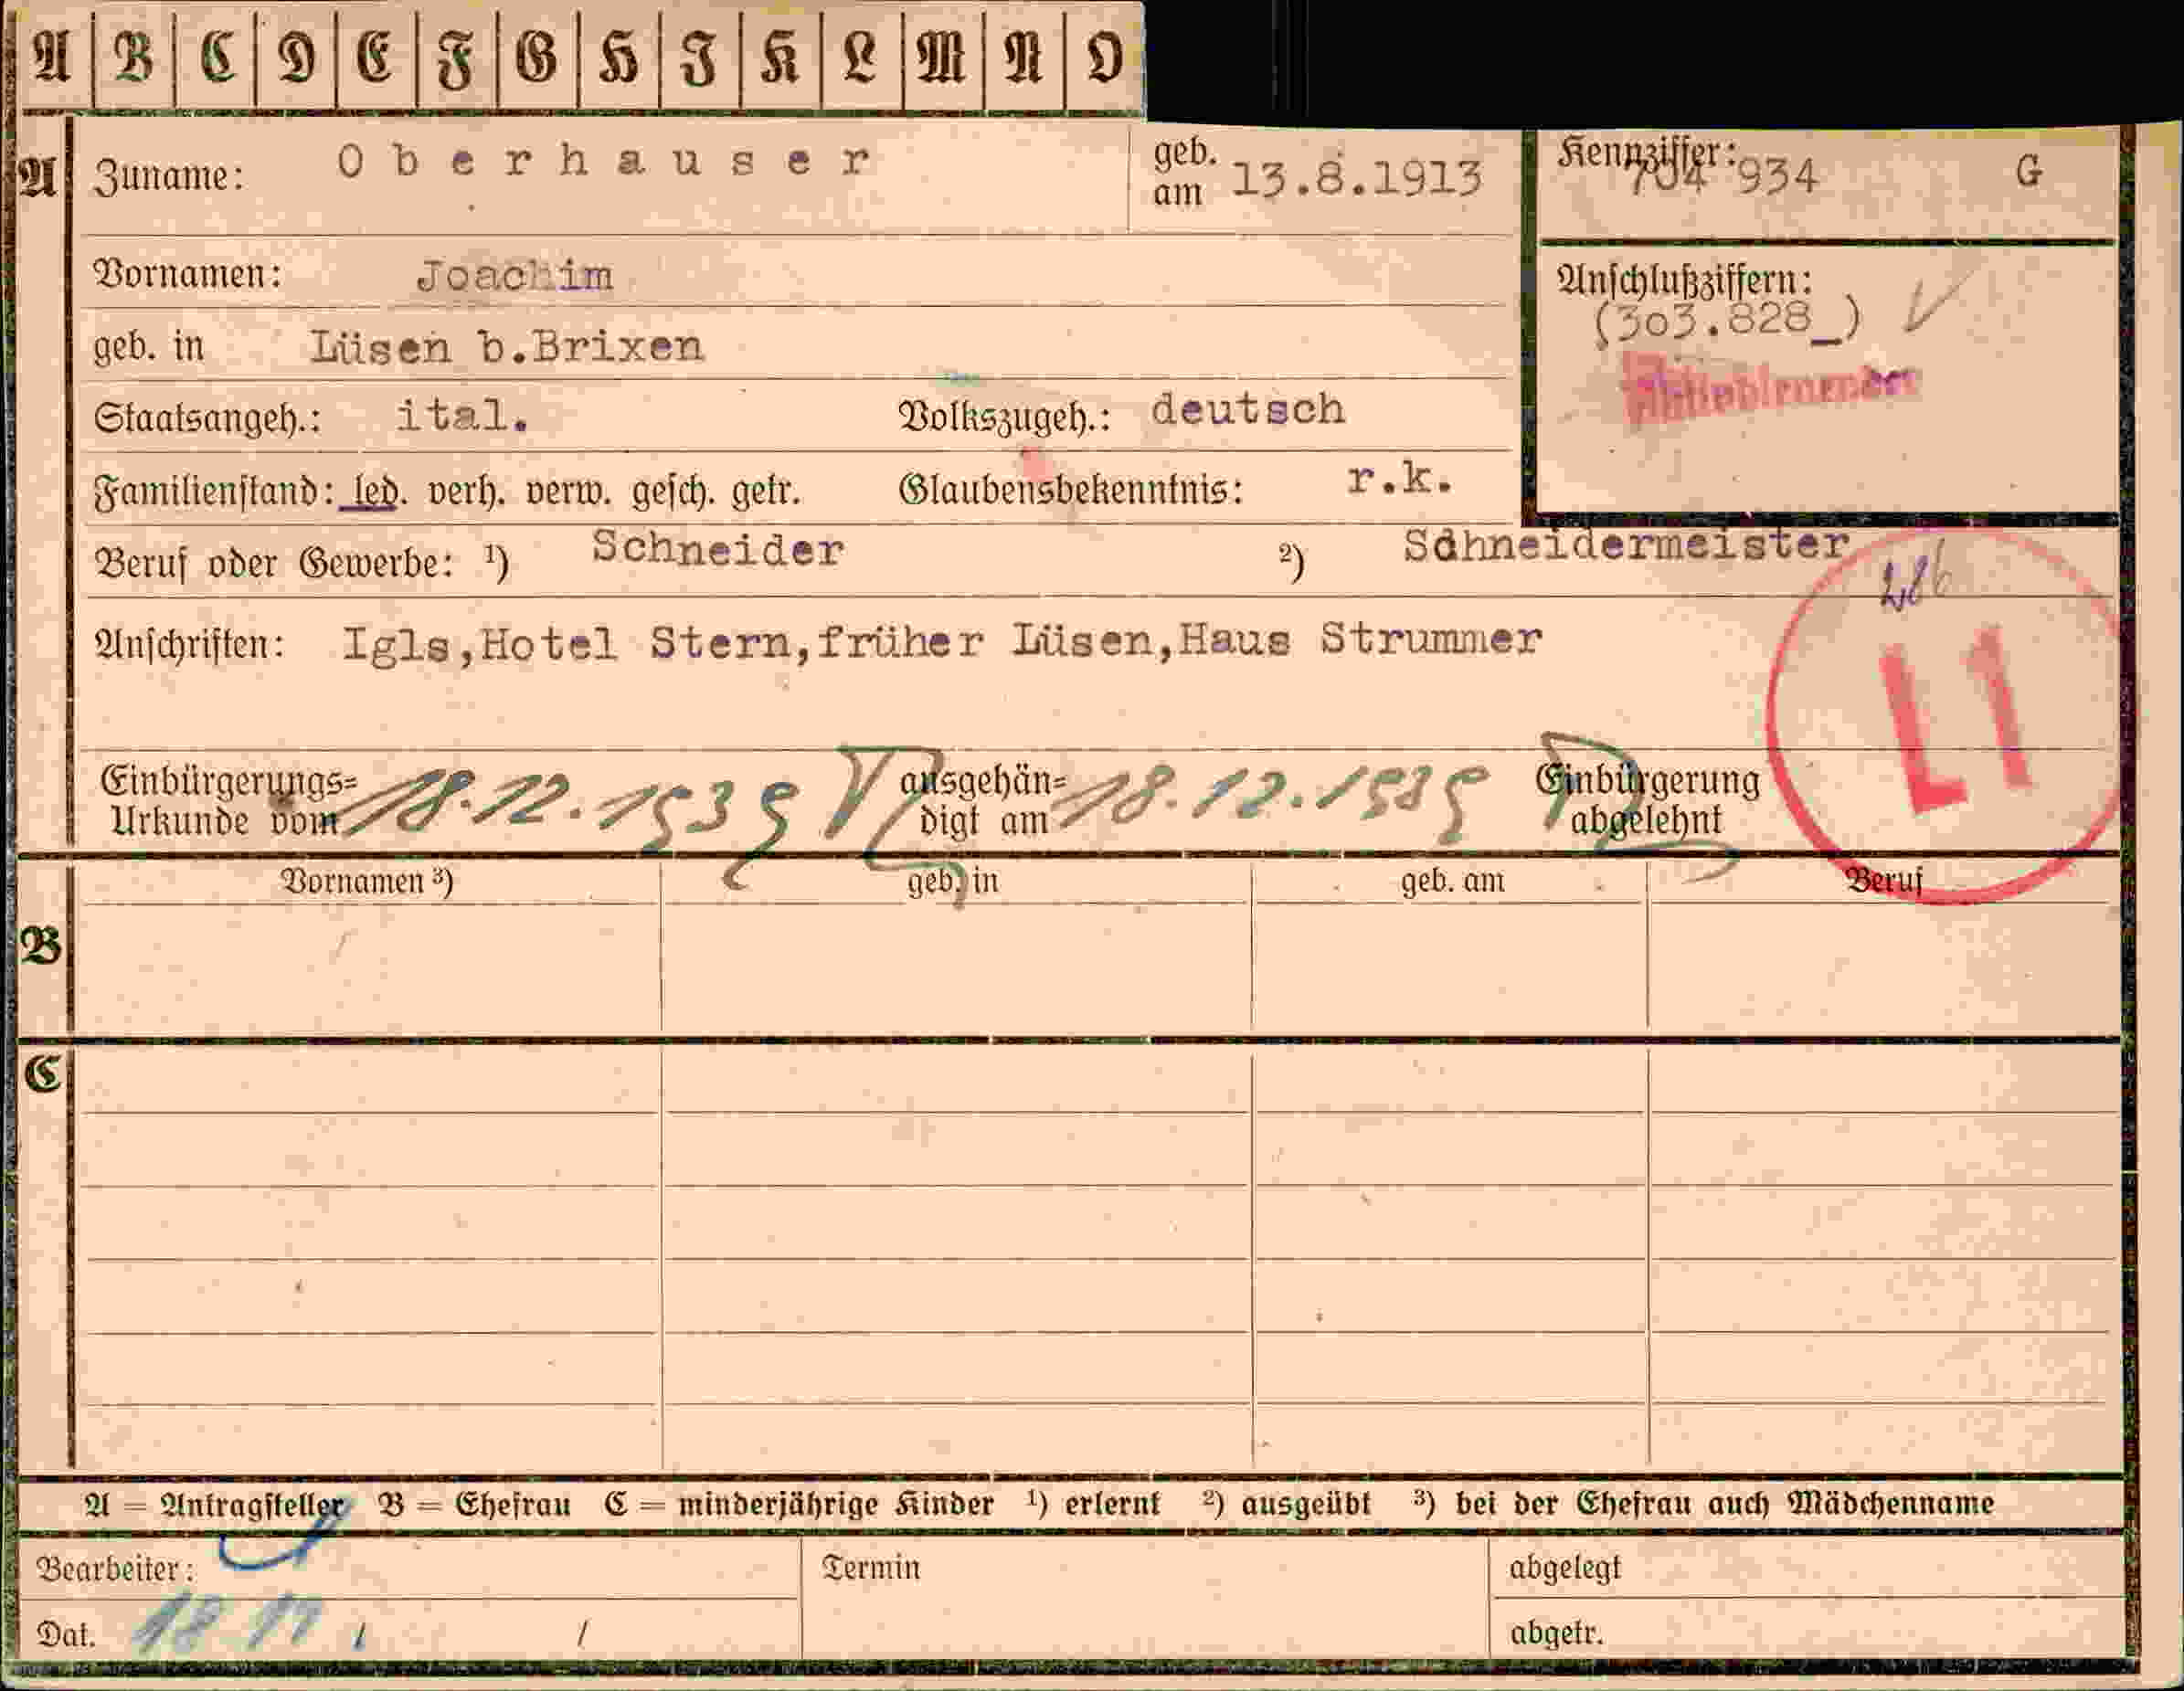 A B C D E F G H I K L M N O
A Zuname: Oberhauser geb. am 13.8.1913
Kennziffer: 704 934 G
Vornamen: Joachim
Anschlußziffern:
(3o3.828_)
geb. in Lüsen b.Brixen
Staatsangeh.: ital. Volkszugeh.: deutsch
Familienstand: led. verh. verw. gesch. getr. Glaubensbekenntnis: r.k.
Beruf oder Gewerbe: ¹) Schneider ²) Sdhneidermeister
286
Anschriften: Igls,Hotel Stern,früher Lüsen,Haus Strummer
L1
Einbürgerungs=
Urkunde vom 18.12.1939 ausgehän=
digt am 18.12.1939 Einbürgerung
abgelehnt
Vornamen ³) geb. in geb. am Beruf
B
C
A = Antragsteller B = Ehefrau C = minderjährige Kinder ¹) erlernt ²) ausgeübt ³) bei der Ehefrau auch Mädchenname
Bearbeiter: Termin abgelegt
Dat. abgetr.